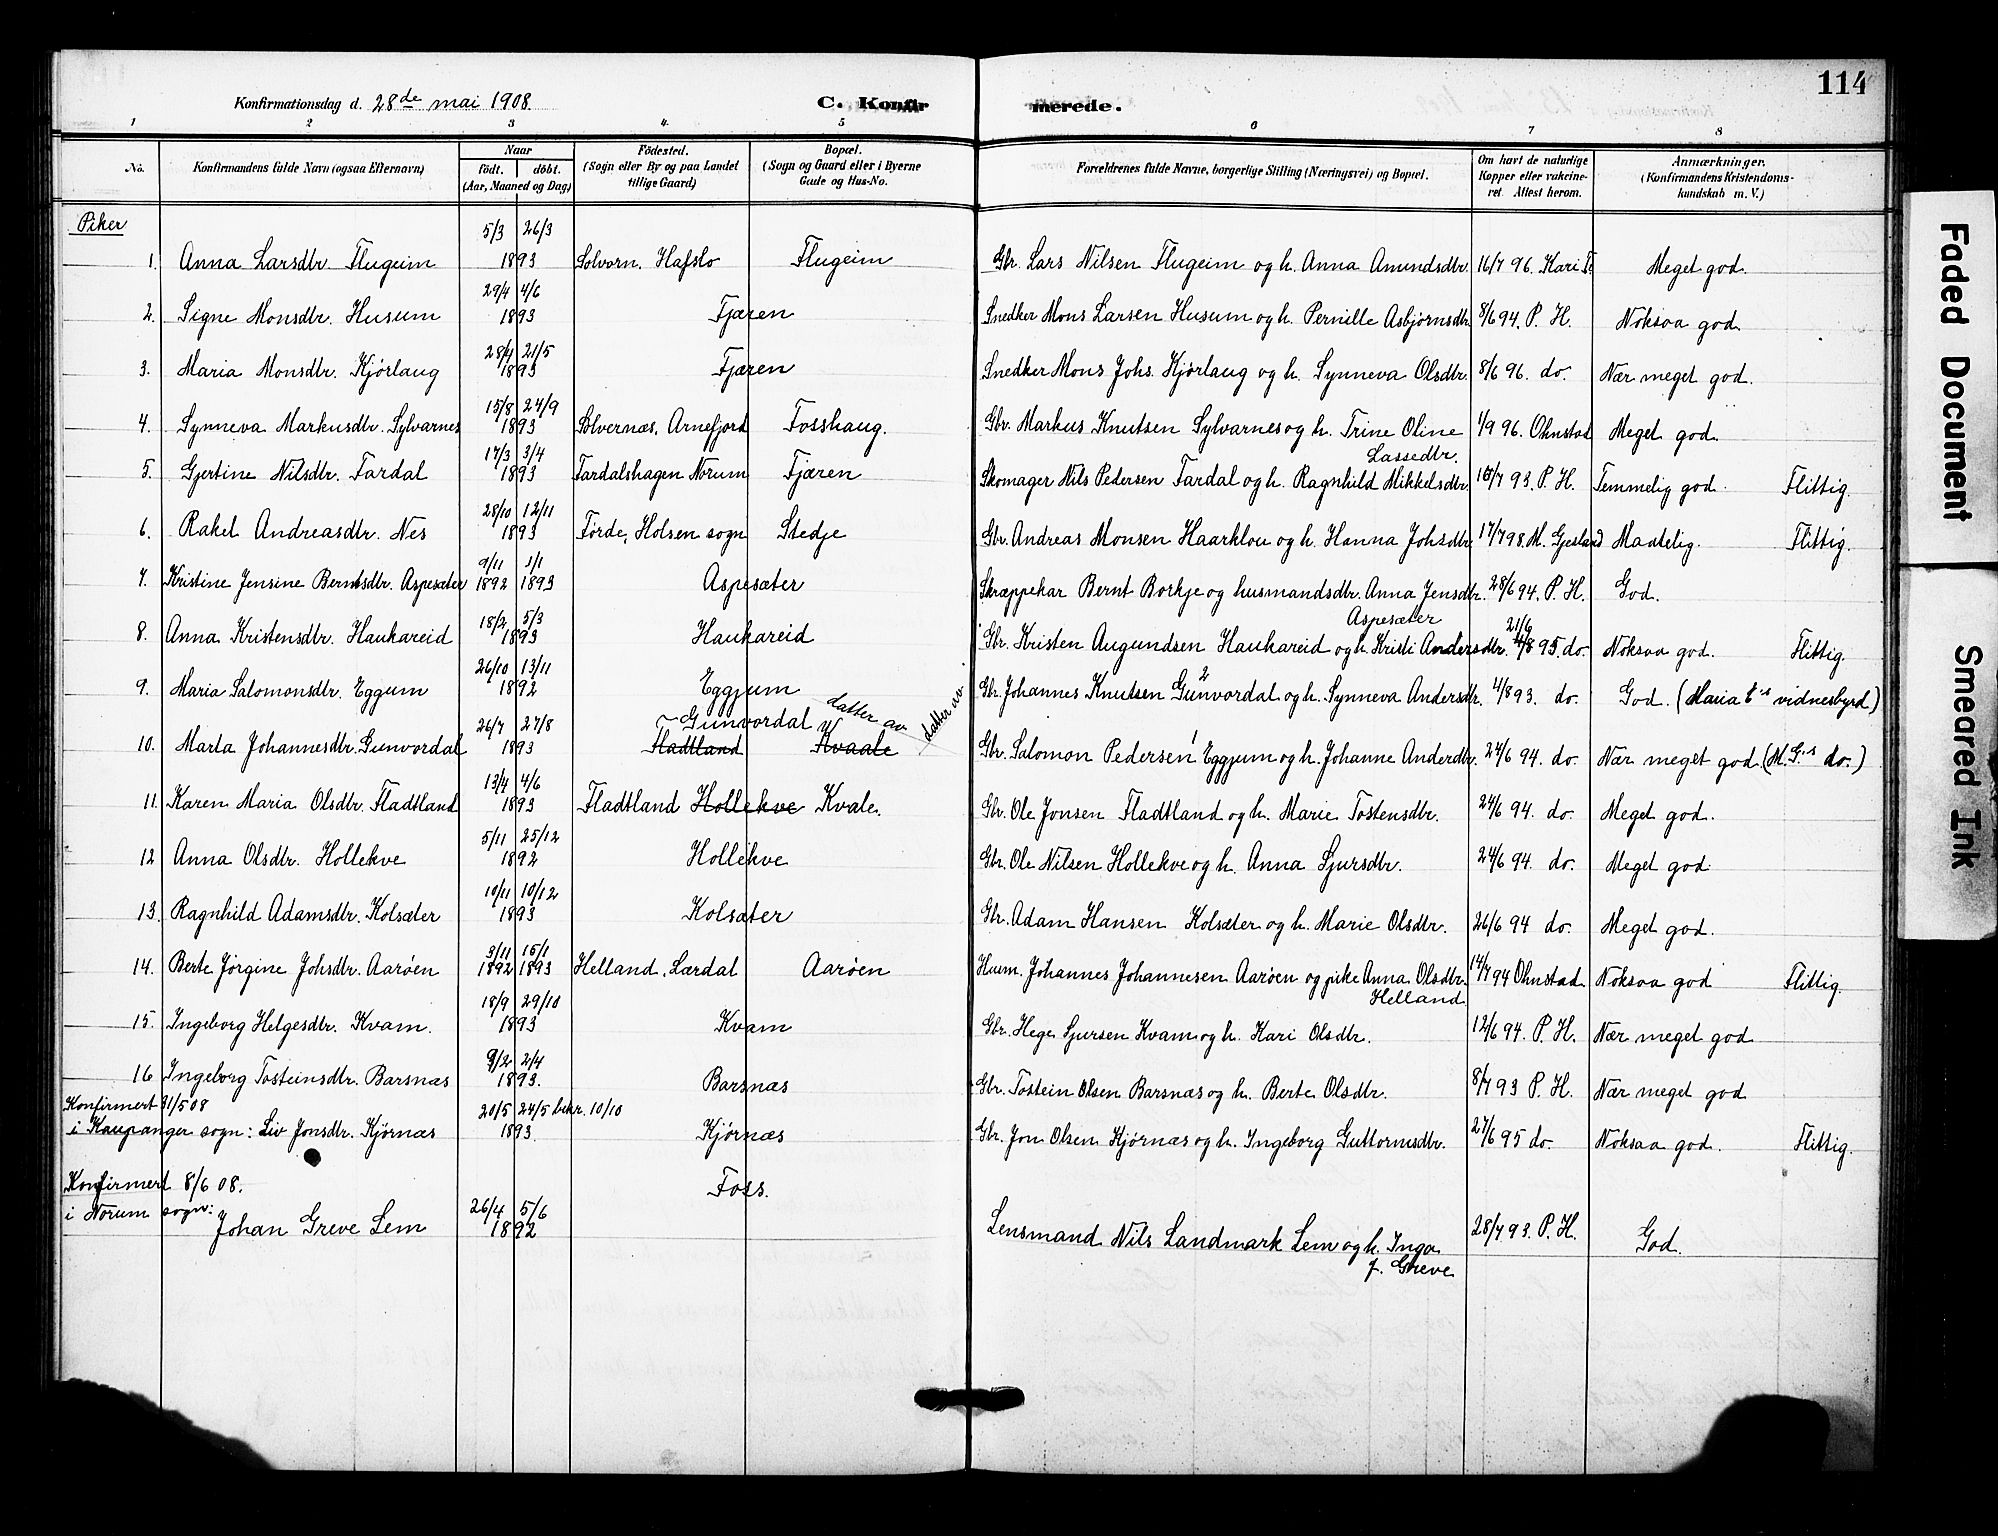 114
Konfirmationsdag d. 28de mai 1908. C. Konfirmerede.
1 2 3 4 5 6 7 8
No. Konfirmandens fulde Navn (ogsaa Efternavn) Naar födt. döbt. (Aar, Maaned og Dag) Födested. (Sogn eller By og paa Landet tillige Gaard) Bopæl. (Sogn og Gaard eller i Byerne Gade og Hus-No. Forældrenes fulde Navne, borgerlige Stilling (Næringsvei) og Bopæl. Om havt de naturlige Kopper eller vakcineret Attest herom. Anmærkninger. (Konfirmandens Kristendomskundskab m. V.)
Piker
1. Anna Larsdtr. Flugeim 5/3 26/3 1893 Solvorn, Hafslo Flugeim Gbr. Lars Nilsen Flugeim og h. Anna Amundsdtr. 16/7 96. Kari F. Meget god.
2. Signe Monsdtr. Husum 29/4 4/6 1893 Fjæren Snedker Mons Larsen Husum og h. Pernille Asbjørnsdtr. 8/6 94. P. H. Noksaa god.
3. Maria Monsdtr. Kjørlaug 28/4 21/5 1893 Fjæren Snedker Mons Johs. Kjørlaug og h. Synneva Olsdtr. 8/6 96. do. Nær meget god.
4. Synneva Markusdtr. Sylvarnes 15/8 24/9 1893 Sølvernæs, Arnefjord Fosshaug. Gbr. Markus Knutsen Sylvarnes og h. Trine Oline Lassedtr. 1/9 96. Ohnstad Meget god.
5. Gjertine Nilsdtr. Fardal 17/3 3/4 1893 Fardalshagen Norum Fjæren Skomager Nils Pedersen Fardal og h. Ragnhild Mikkelsdtr. 15/7 93. P. H. Temmelig god. Flittig.
6. Rakel Andreasdtr. Nes 28/10 12/11 1893 Førde, Holsen sogn Stedje Gbr. Andreas Monsen Haarklou og h. Hanna Johsdtr. 17/7 98. M. Gjesland Maadelig. Flittig.
7. Kristine Jensine Berntsdtr. Aspesæter 9/11 1892 1/1 1893 Aspesæter Skræppekar Bernt Borkje og husmandsdtr. Anna Jensdtr. Aspesæter 28/6 94. P. H. God.
8. Anna Kristensdtr. Haukareid 18/2 5/3 1893 Haukareid Gbr. Kristen Augundsen Haukareid og h. Kristi Andersdtr. 21/6 4/8 95. do. Noksaa god. Flittig.
9. Maria Salomonsdtr. Eggum 26/10 13/11 1892 Eggjum datter av Gbr. Johannes Knutsen Gunvordal 2 og h. Synneva Andersdtr. 4/8 93. do. God. (Maria E-s vidnesbyrd)
10. Marta Johannesdtr. Gunvordal 26/7 27/8 1893 Gunvordal Fladtland Kvaale datter av Gbr. Salomon Pedersen 1 Eggjum og h. Johanne Anderdtr. 24/6 94. do. Nær meget god. (M. G.-s do.)
11. Karen Maria Olsdtr. Fladtland 13/4 4/6 1893 Fladtland Hollekve Kvale. Gbr. Ole Jonsen Fladtland og h. Marie Tostensdtr. 24/6 94. do. Meget god.
12 Anna Olsdtr. Hollekve 5/11 25/12 1892 Hollekve Gbr. Ole Nilsen Hollekve og h. Anna Sjursdtr. 24/6 94. do. Meget god.
13. Ragnhild Adamsdtr. Kolsæter 10/11 10/12 1893 Kolsæter Gbr. Adam Hansen Kolsæter og h. Marie Olsdtr. 26/6 94 do. Meget god.
14. Berte Jørgine Johsdtr. Aarøen 3/11 1892 15/1 1893 Helland, Lærdal Aarøen Husm. Johannes Johannesen Aarøen og pike Anna Olsdtr. Helland 14/7 94 Ohnstad Noksaa god Flittig.
15. Ingeborg Helgesdtr. Kvam. 18/9 29/10 1893 Kvam Gbr. Hege Sjursen Kvam og h. Kari Olsdtr. 12/6 94. P. H. Nær meget god
16 Ingeborg Tosteinsdtr. Barsnæs 9/2 2/4 1893. Barsnæs Gbr. Tostein Olsen Barsnæs og h. Berte Olsdtr. 8/7 93 P. H. Nær meget god
Konfirmert 31/5 08
i Kaupanger sogn: Liv Jonsdtr. Kjørnæs 20/5 24/5 bekr. 10/10 1893. Kjørnæs Gbr. Jon Olsen Kjørnæs og h. Ingeborg Guttormsdtr. 27/6 95 do. Noksaa god. Flittig.
Konfirmert 8/6 08.
i Norum sogn: Johan Greve Lem 26/4 5/6 1892 Foss. Lensmand Nils Landmark Lem og h. Inga J. Greve 28/7 93. P. H. God.
Faded Document
Smeared Ink